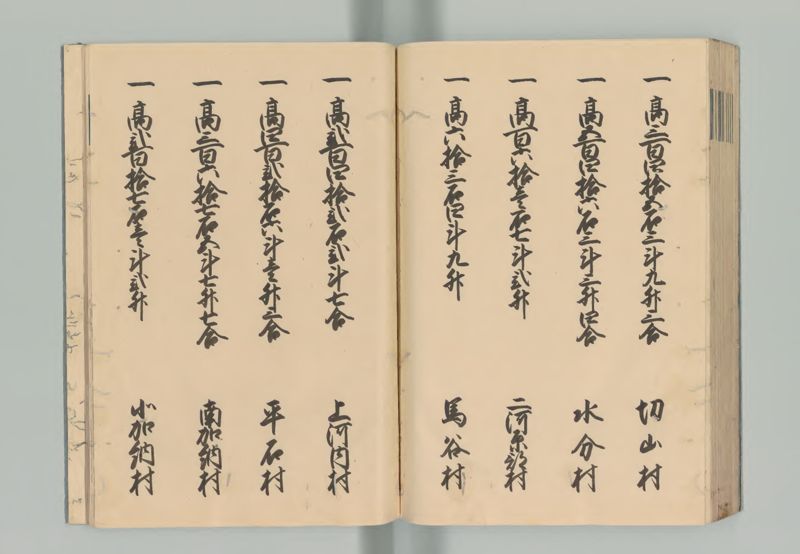 一高三百四拾五石三斗九升三合 切山村
一高五百四拾六石三斗三升四合 水分村
一高百六拾壱石七斗弐升 二河原邊村
一高六拾三石四斗九升 馬谷村
一高弐百四拾弐石弐斗七合 上河内村
一高四百弐拾石八斗壱升三合 平石村
一高三百六拾七石五斗七升七合 南加納村
一高弐百拾七石壱斗弐升 北加納村